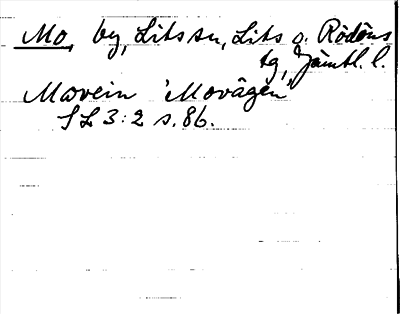 Mo, by, Lits sn, Lits o. Rödöns
tg, Jämtl. l.
Movein 'Movägen'
SL 3:2 s. 86.